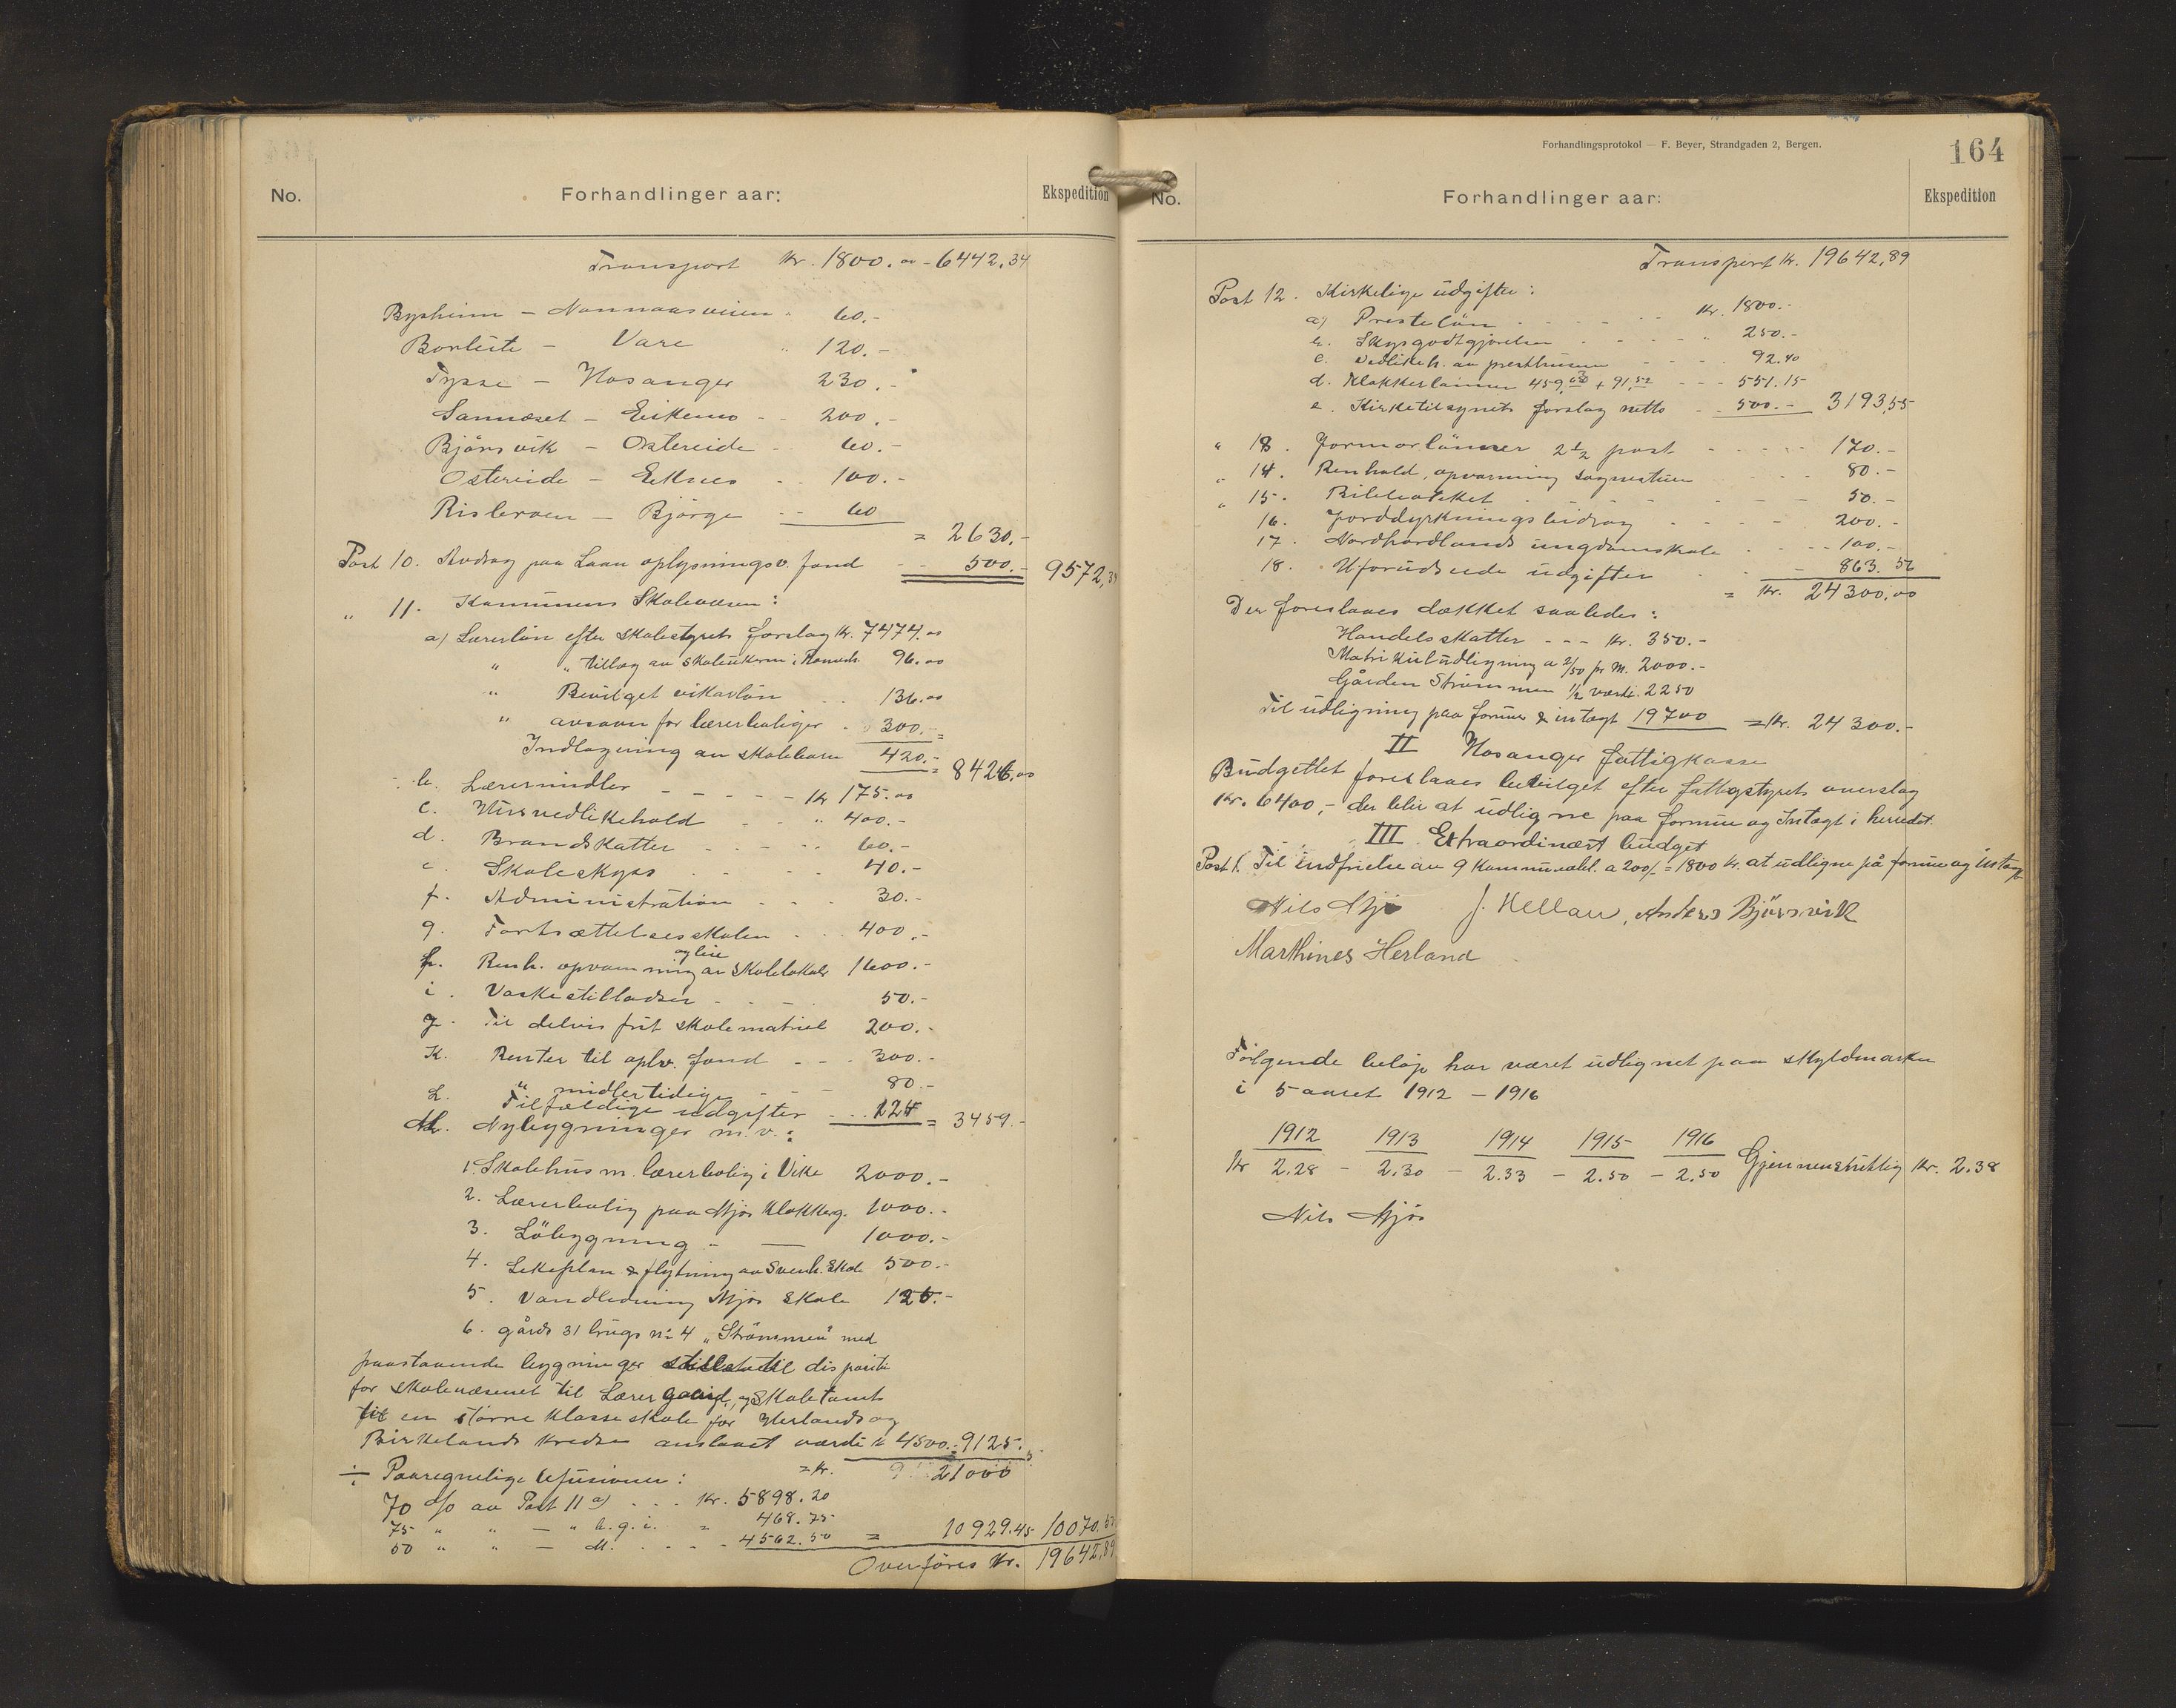 No. Forhandlinger aar: Ekspedition
Transport Kr. 1800.00 - 6442,34
Bysheim - Nonnaasveien " 60.-
Borleite - Vare " 120.-
Tysse - Hosanger 230.-
Sannæset - Eikemo - - 200.-
Bjørsvik - Ostereide - 60.-
Ostereide - Eknes - - 100.-
Risleroen - Bjørge - - 60
= 2630.-
Post 10. Avdrag paa Laan oplysningsv. fond - - 500.- 9572,34
" 11. Kommunens Skolevæsen:
a) Lærerløn efter skolestyrets forslag Kr. 7474.00
" " tillæg av skoleukerne i 96.00
" Bevilget vikarløn - - 136.00
" avsavn for lærerboliger - 300.-
Indlogering av skolebarn 420.- = 8426,00
b. Lærermidler - - - - - Kr 175.00
c. Husvedlikehold - - " 400.-
d. Brandskatter - - - - - 60.-
e. Skoleskyss - - - - 40.-
f. Administration - - - 30.-
g. Fortsættelsesskolen - - 400.-
h. Renh. opvarmning og leie av skolelokaler 1600.-
i. Vaskestilladser - - - 50.-
j. Til delvis frit skolematriel 200.-
K. Renter til oplv. fond - - - 300.-
" midlertidige - - 80.-
L. Tilfældige udgifter - - . 124 = 3459.-
M. Nybygninger m.v.:
1. Skolehus m. lærerbolig i Vike 2000.-
2. Lærerbolig paa Mjøs Klokkerg. 1000.-
3. Løbygning " — 1000.-
4. Lekeplan & flytning av Svenh. Skole 500.-
5. Vandledning Mjøs Skole 125.-
6. gårds 31 brugs no 4 "Strømmen" med
paastaaende bygninger stilles til disposition
for skolevæsenet til Lærergaard, og Skoletomt
til en større Klasseskole for Herlands og
Birkelands kredse anslaaet værdi Kr 4500.- = 9125.-
= Kr. 21000
÷ Paaregnelige Refusioner:
70 % av Post 11 a) . . . Kr. 5898.20
75 " " — " b. g. i. = 468.75
50 " " — M. . . . - 4562.50 = 10929.45 10070.55
Overføres Kr. 19642,89
Forhandlingsprotokol — F. Beyer, Strandgaden 2, Bergen.
164
No. Forhandlinger aar: Ekspedition
Transport Kr. 19642,89
Post 12. Kirkelige udgifter:
a) Presteløn - - - - - Kr. 1800.-
b. Skysgodtgjørelsen - - - - " 250.-
c. Vedlikeh. av presthusene - - - - 92.40
d. Klokkerlønnen 459,63 + 91,52 - - - 551.15
e. Kirketilsynets forslag netto - - 500.- 3193,55
" 13. Jormorlønner 2 1/2 post - - - - - 170.-
" 14. Renhold, opvarming sognestuen - - - 80.-
" 15. Biblioteket - - - - - - - 50.-
16. Jorddyrkningsbidrag - - - - 200.-
17. Nordhordlands ungdomskole - - - 100.-
18. Uforudsede udgifter - - - 863.56
= Kr. 24300,00
Der foreslaaes dækket saaledes:
Handelsskatter - - - Kr. 350.-
Matrikuludligning a 2/50 pr M. 2000.-
Gården Strømmen 1/2 værdi. 2250
Til udligning paa formue & intægt 19700 = Kr. 24300.-
II Hosanger fattigkasse
Budgettet foreslaaes bevilget efter fattigstyrets overslag
Kr. 6400,- der blir at udligne paa formue og Intægt i herredet.
III Extraordinært budget
Post 1. Til indfrielse av 9 Kommuneobl. a 200/- = 1800 Kr. at udligne på formue og intægt
Nils Mjøs J. Helland, Anders Bjørsvik
Marthines Herland
Følgende beløp har været udlignet paa skyldmarken
i 5 aaret 1912 - 1916
1912 1913 1914 1915 1916
Kr 2.28 - 2.30 - 2.33 - 2.50 - 2.50 Gjennensnittlig Kr. 2.38
Nils Mjøs